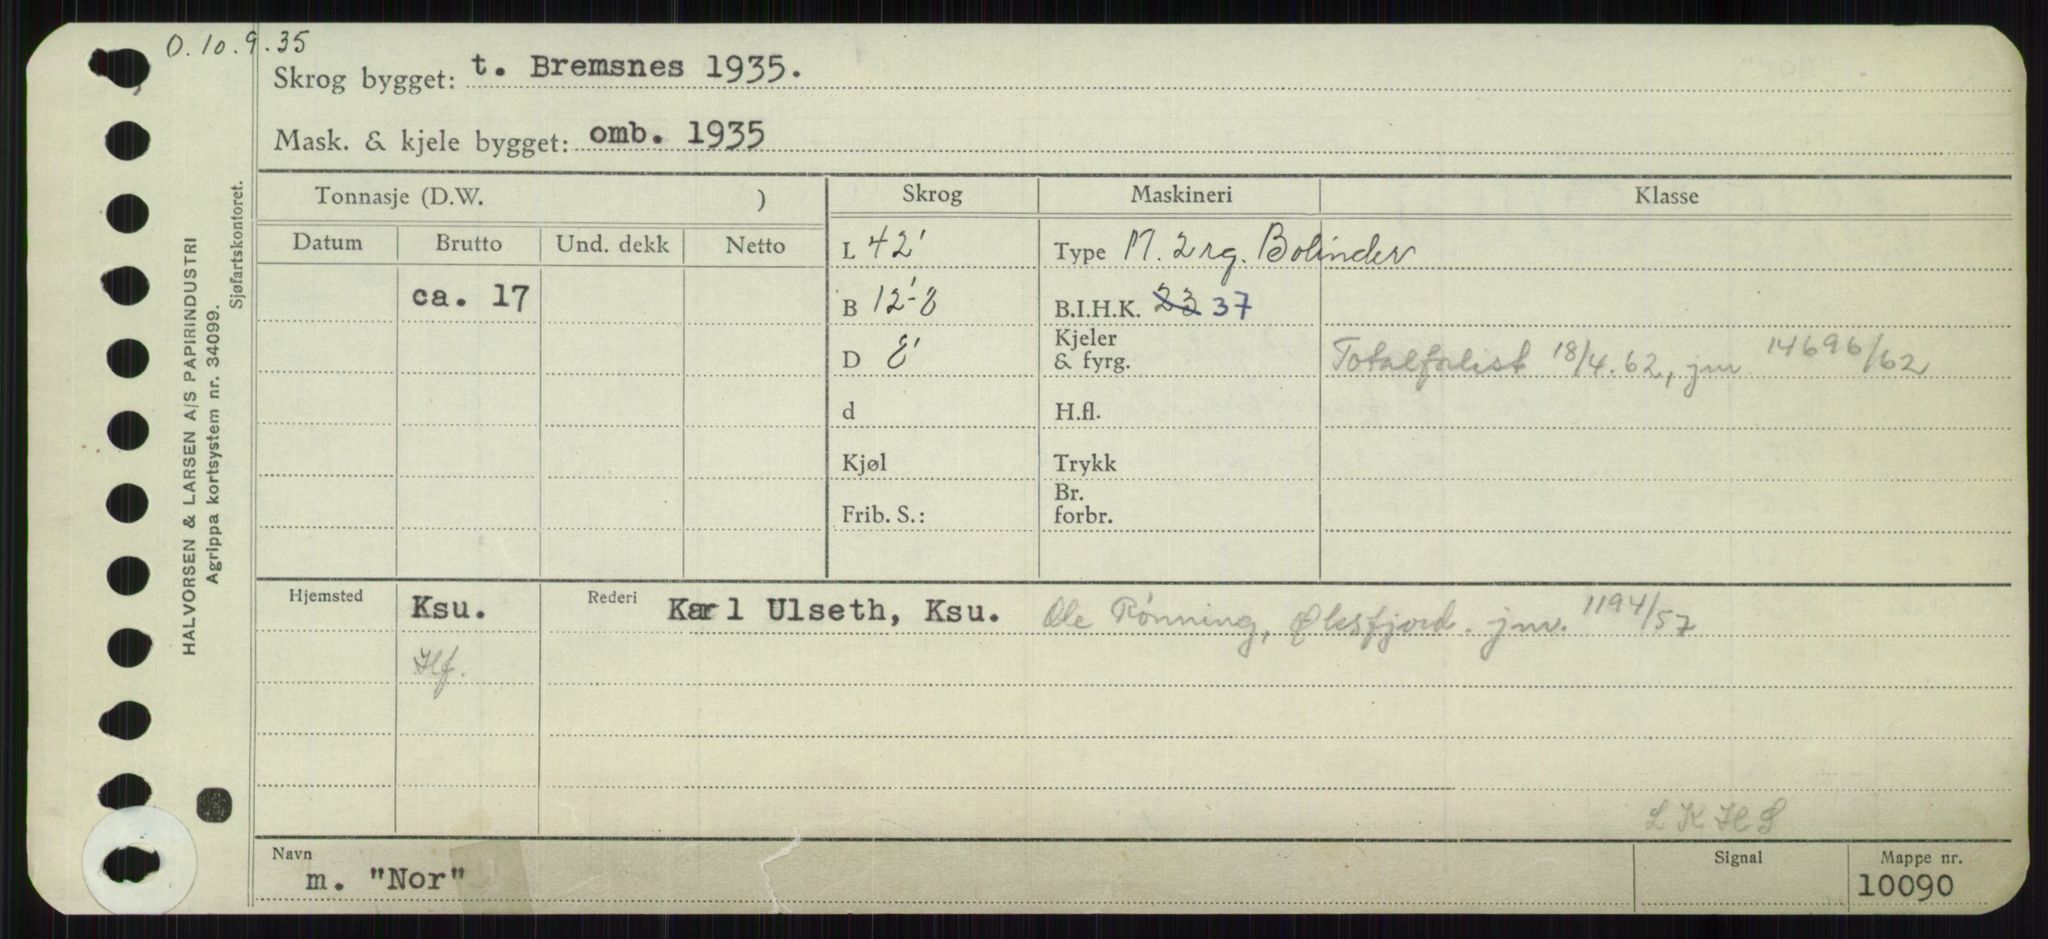 O. 10. 9. 35
Skrog bygget: t. Bremsnes 1935.
Mask. & kjele bygget: omb. 1935
Tonnasje (D.W. ) Skrog Maskineri Klasse
Datum Brutto Und. dekk Netto L 42' Type M. 2 rg. Bolinder
ca. 17 B 12'-8 B.I.H.K. 22 37
D 8' Kjeler & fyrg. Totalforlist 18/4.62, jm 14696/62
d H.fl.
Kjøl Trykk
Frib. S.: Br. forbr.
Hjemsted Ksu. Rederi Karl Ulseth, Ksu. Ole Rønning, Øksfjord. jm. 1194/57
Hf.
L K H S
Navn m. "Nor" Signal Mappe nr. 10090
HALVORSEN & LARSEN A/S PAPIRINDUSTRI
Agrippa kortsystem nr. 34099.
Sjøfartskontoret.